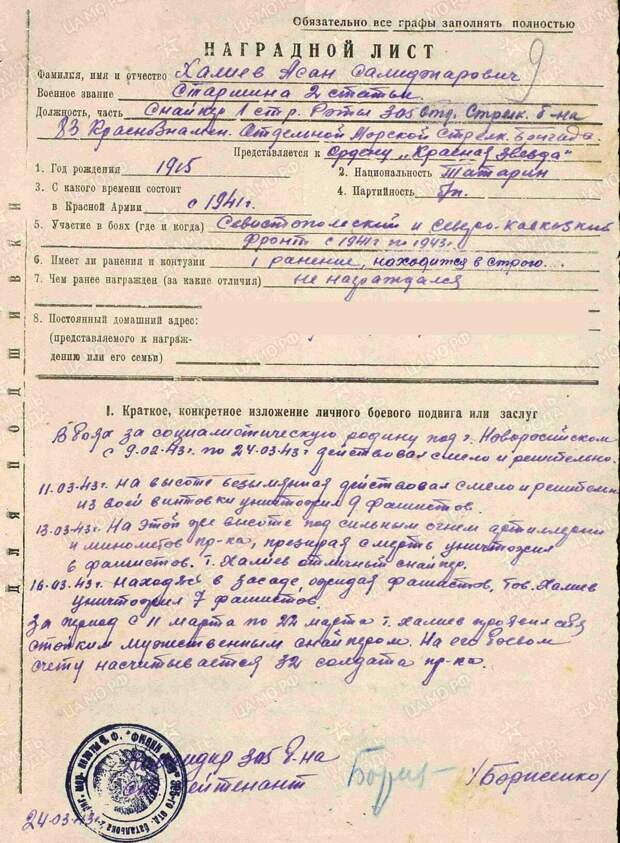 Обязательно все графы заполнять полностью
9
НАГРАДНОЙ ЛИСТ
Фамилия, имя и отчество Халиев Асан
Военное звание Старшина 2 статьи
Должность, часть Снайпер 1 стр. Роты 305 отд. Стрелк. б-на
83 Краснознамен. Отдельной Морской Стрелк. Бригады.
Представляется к Ордену „Красная Звезда"
1. Год рождения 1915 2. Национальность Татарин
3. С какого времени состоит
в Красной Армии с 1941 г. 4. Партийность б/п.
5. Участие в боях (где и когда) Севостопольский и Северо-Кавказкий
фронт с 1941 г по 1943 г.
6. Имеет ли ранения и контузии 1 ранение, находится в строю.
7. Чем ранее награжден (за какие отличия) не награждался
8. Постоянный домашний адрес:
(представляемого к награж-
дению или его семьи)
ДЛЯ ПОДШИВКИ
I. Краткое, конкретное изложение личного боевого подвига или заслуг
В боях за социалистическую родину под г. Новоросийском
с 9.02.43 г. по 24.03.43 г действовал смело и решительно.
11.03.43 г. на высоте безымянная действовал смело и решительно
из своей винтовки уничтожил 9 фашистов.
13.03.43 г. На этой же высоте под сильным огнем артиллерии
и минометов пр-ка, презирая смерть уничтожил
6 фашистов. т. Халиев отличный снайпер.
16.03.43 г. Находясь в засаде, ожидая фашистов, тов. Халиев
уничтожил 7 фашистов.
За период с 11 марта по 22 марта т. Халиев проявил себя
стойким мужественным снайпером. На его боевом
счету насчитывается 32 солдата пр-ка.
Командир 305 б-на
лейтенант /Борисенко/
24.03.43 г.
ЦАМО.РФ